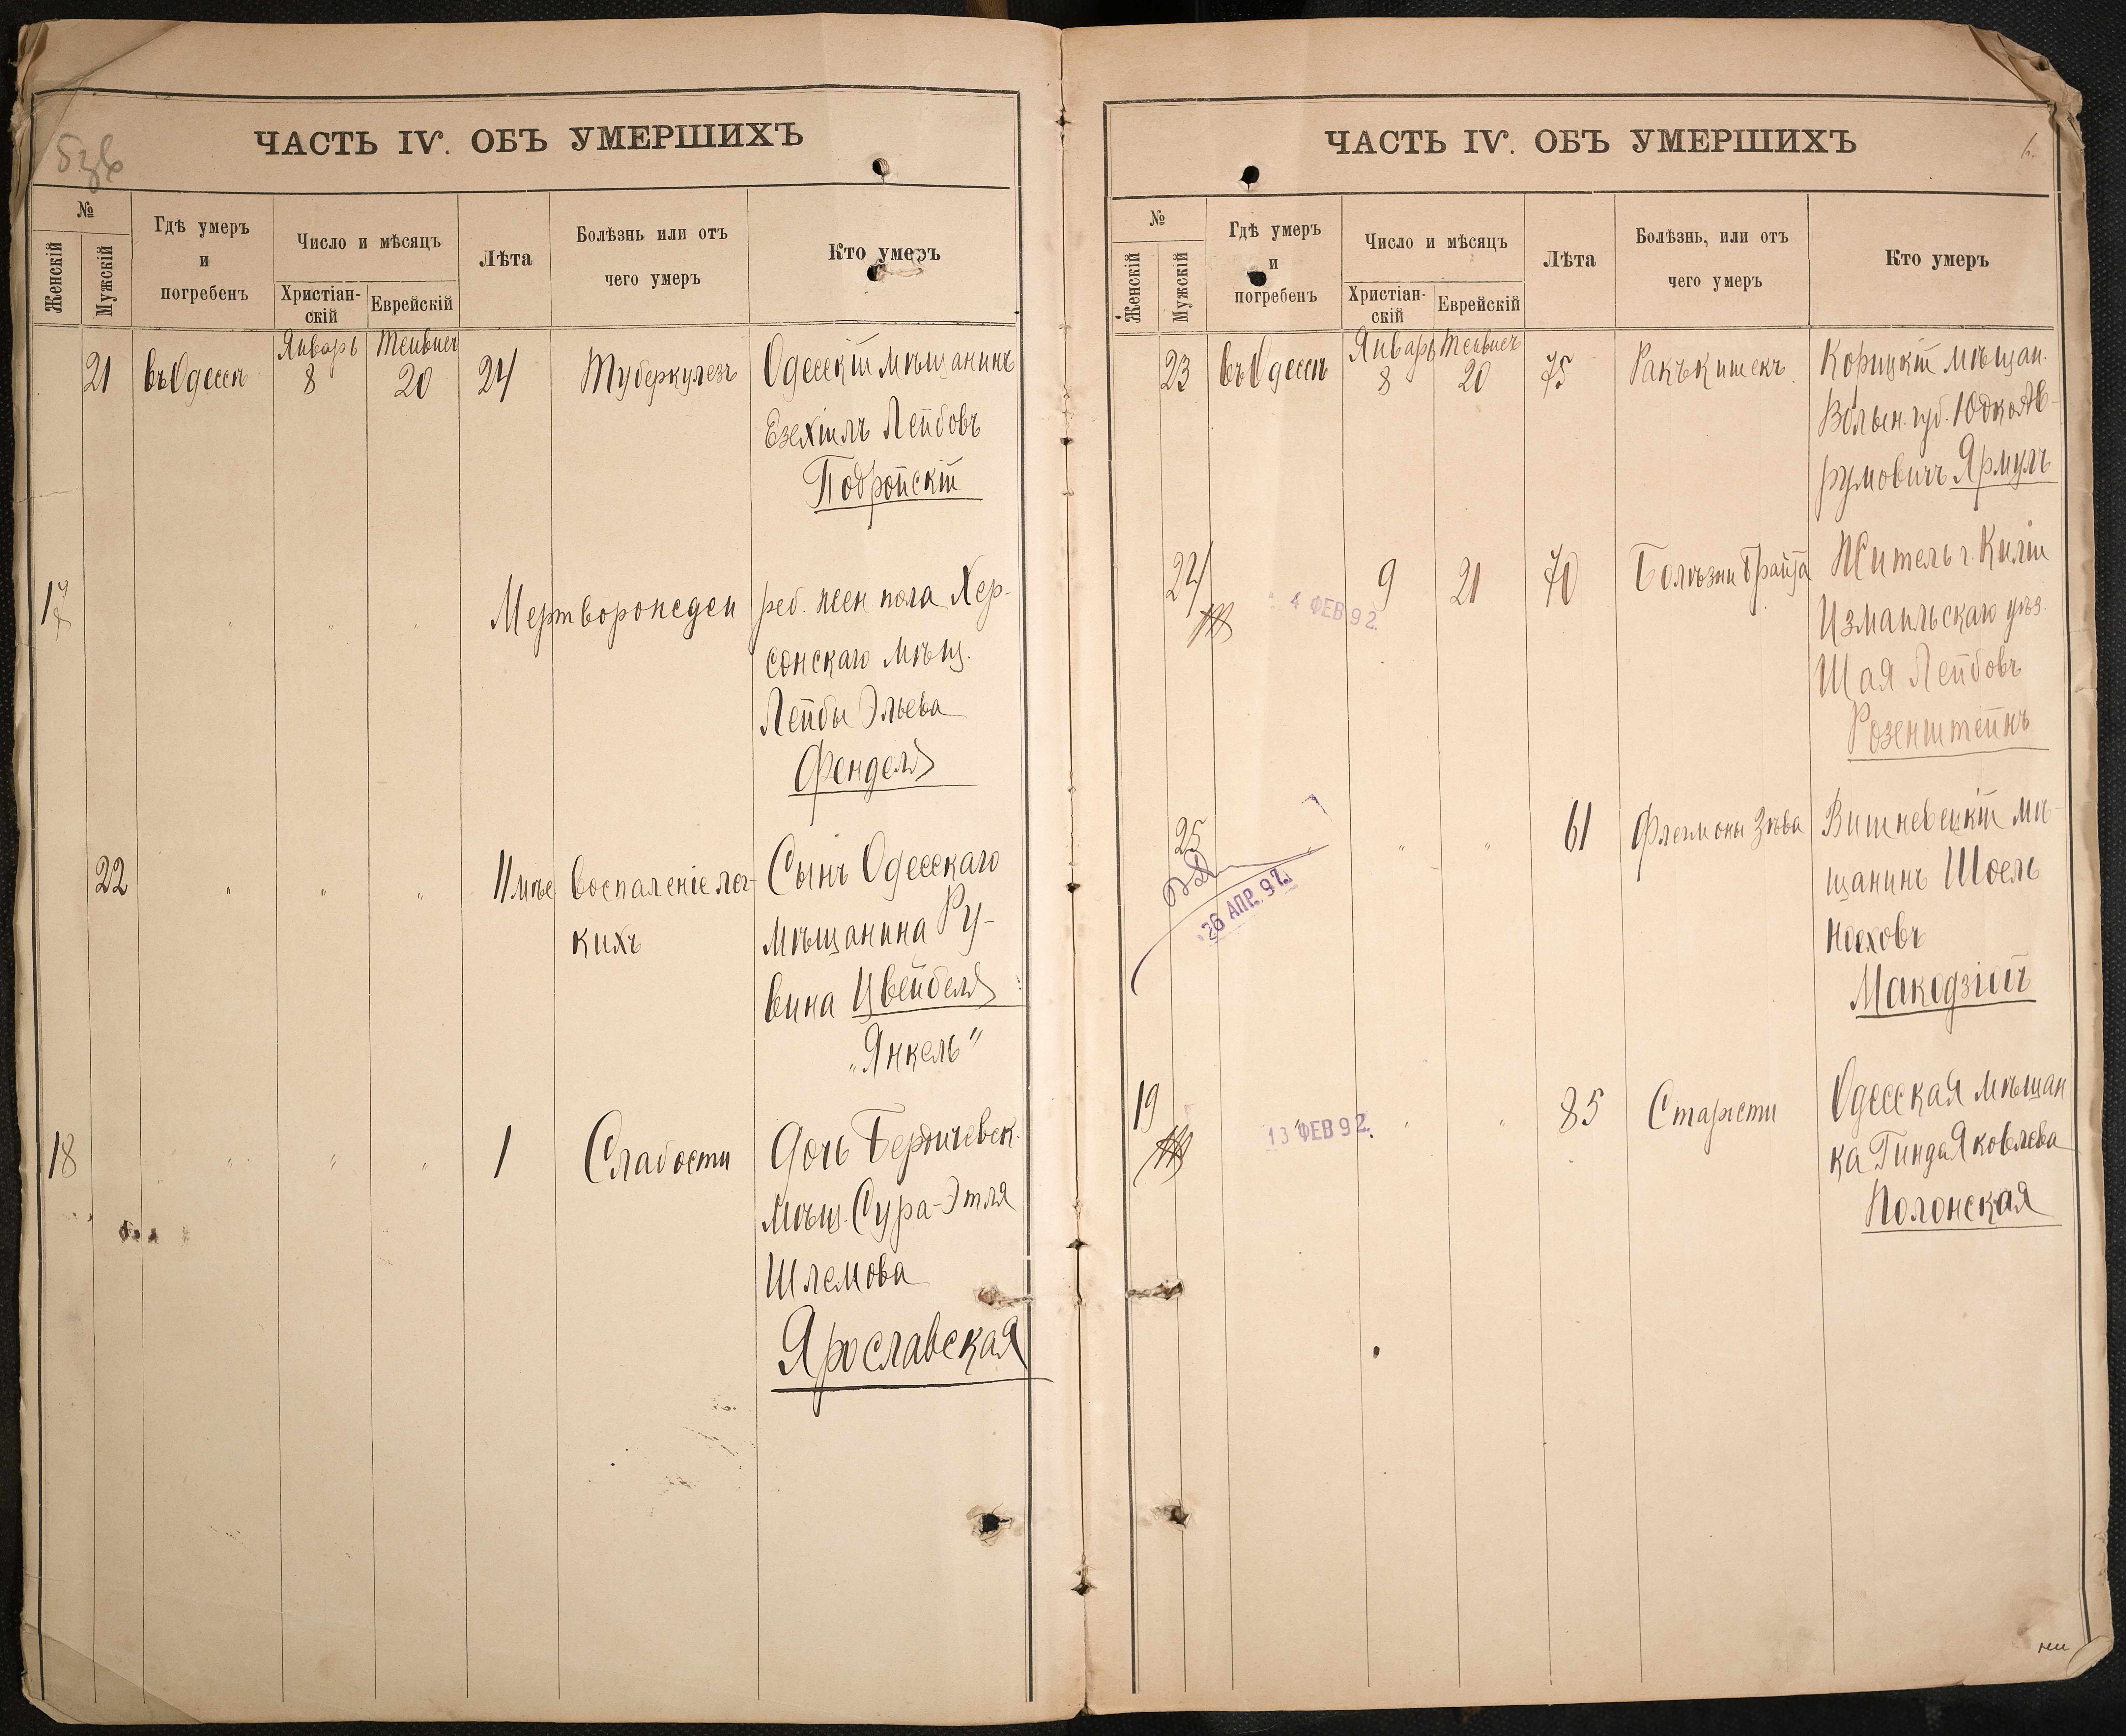 ЧАСТЬ IV. ОБЪ УМЕРШИХЪ
№
Женскій
Мужскій
Гдѣ умеръ
и
погребенъ
Число и мѣсяцъ
Христіан-
скій
Еврейскій
Лѣта
Болѣзнь или отъ
чего умеръ
Кто умеръ
Январь Тейвисъ
21 въ Одессѣ 8 20 24 Туберкулезъ Одесскій мѣщанинъ
Езехіилъ Лейбовъ
Подройскій
17 Мертворожден реб. жен пола Хер-
сонскаго мѣщ.
Лейбы Эльева
Фенделя
22 " " " 11 мѣс Воспаленіе лег- Сынъ Одесскаго
кихъ мѣщанина Ру-
вина Цвейбеля
„Янкель"
18 " " " 1 Слабости Дочь Бердичевск.
мѣщ. Сура-Этля
Шлемова
Ярославская
ЧАСТЬ IV. ОБЪ УМЕРШИХЪ
6.
№
Женскій
Мужскій
Гдѣ умеръ
и
погребенъ
Число и мѣсяцъ
Христіан-
скій
Еврейскій
Лѣта
Болѣзнь, или отъ
чего умеръ
Кто умеръ
Январь Тейвисъ
23 въ Одессѣ 8 20 75 Ракъ кишекъ Корицкій мѣщан.
Волын. губ. Юдко Ав-
румовичъ Ярмулъ
24 9 21 70 Болѣзни Брайта Житель г. Киліи
4 ФЕВ 92. Измаильскаго уѣз.
Шая Лейбовъ
Розенштейнъ
25 " " " 61 Флегмоны Зѣва Вишневецкій мѣ-
26 АПР. 92. щанинъ Шоель
Ноеховъ
Макодзіой
19 13 ФЕВ 92. " " 85 Старости Одесская мѣщан
ка Гинда Яковлева
Полонская